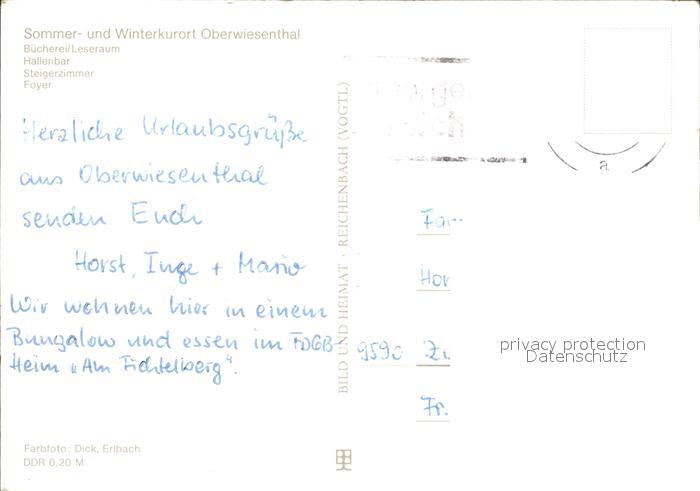 Sommer- und Winterkurort Oberwiesenthal
Bücherei/Leseraum
Hallenbar
Steigerzimmer
Foyer
Herzliche Urlaubsgrüße
aus Oberwiesenthal
senden Euch
Horst, Inge + Mario
Wir wohnen hier in einem
Bungalow und essen im FDGB-
Heim „Am Fichtelberg".
Farbfoto: Dick, Erlbach
DDR 0,20 M
BILD UND HEIMAT · REICHENBACH (VOGTL)
a
Fa
Hor
9590 Zw
Fr.
privacy protection
Datenschutz